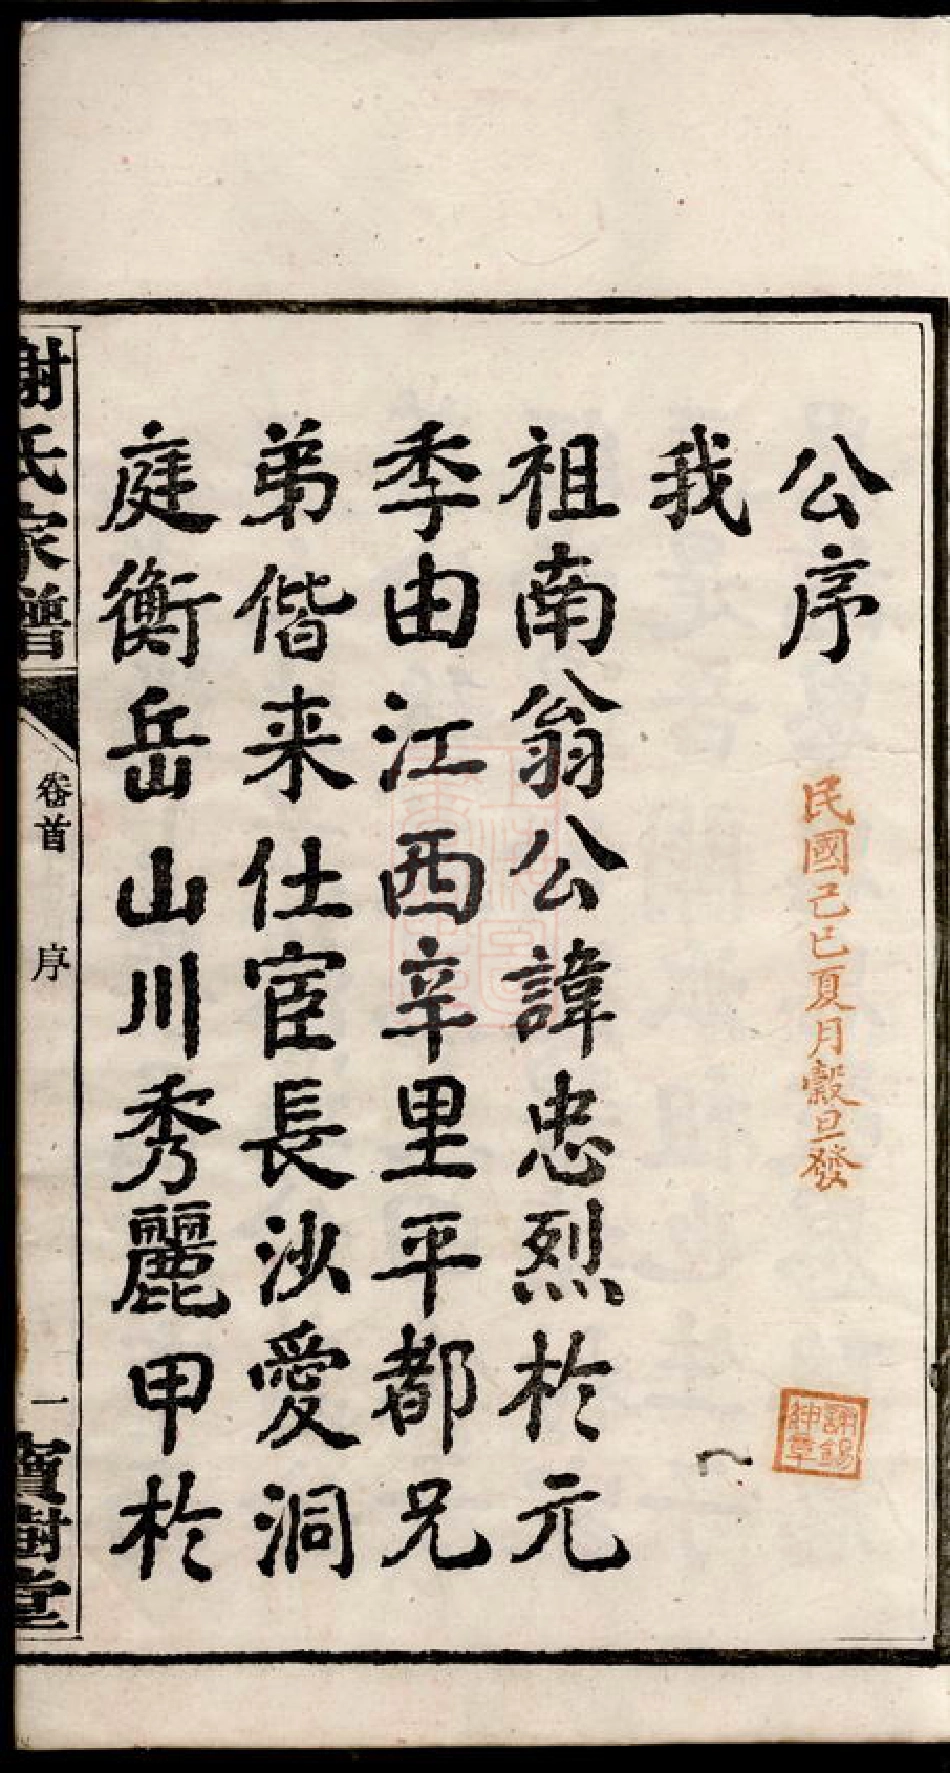 公序
民國己巳夏月穀旦發
謝錫
紳章
我
祖南翁公諱忠烈於元
季由江西辛里平都兄
弟偕来仕宦長沙愛洞
庭衡岳山川秀麗甲於
謝氏家譜
卷首
序
一
寶樹堂